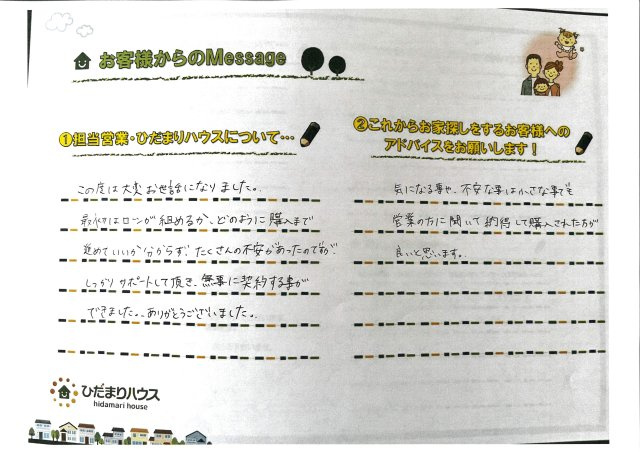 お客様からのMessage
①担当営業・ひだまりハウスについて…
この度は大変お世話になりました。
最初はローンが組めるか、どのように購入まで
進めていいか分からず、たくさんの不安があったのですが、
しっかりサポートして頂き、無事に契約する事が
できました。ありがとうございました。
②これからお家探しをするお客様への
アドバイスをお願いします!
気になる事や、不安な事は小さな事でも
営業の方に聞いて納得して購入された方が
良いと思います。
ひだまりハウス
hidamari house